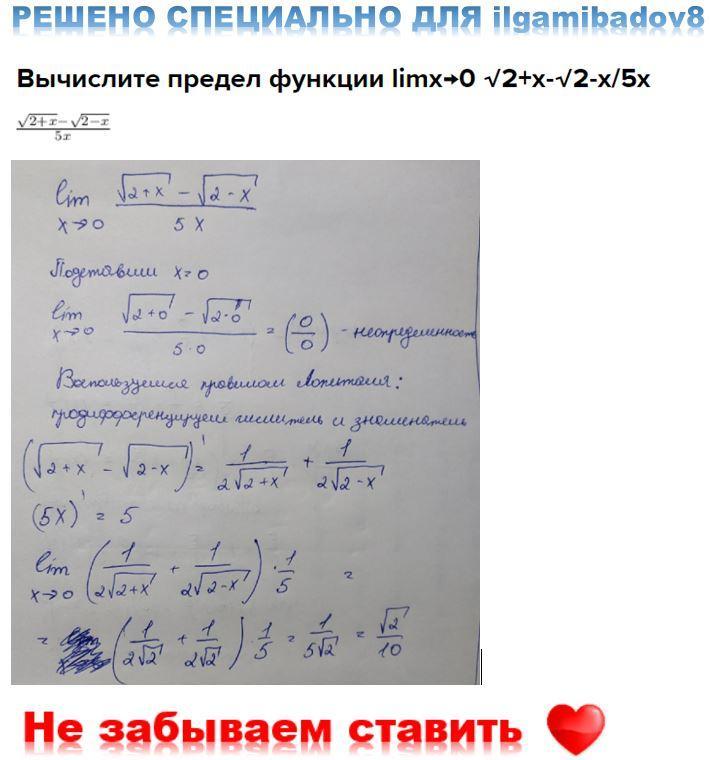 РЕШЕНО СПЕЦИАЛЬНО ДЛЯ ilgamibadov8
Вычислите предел функции limx→0 √2+x-√2-x/5x
(√(2+x) − √(2−x))/(5x)
lim x→0 (√(2+x) − √(2−x))/(5x)
Подставим x=0
lim x→0 (√(2+0) − √(2-0))/(5·0) = (0/0) - неопределенность
Воспользуемся правилом Лопиталя:
продифференцируем числитель и знаменатель
(√(2+x) − √(2-x))' = 1/(2√(2+x)) + 1/(2√(2-x))
(5x)' = 5
lim x→0 (1/(2√(2+x)) + 1/(2√(2-x))) · 1/5 =
= (1/(2√2) + 1/(2√2)) · 1/5 = 1/(5√2) = √2/10
Не забываем ставить